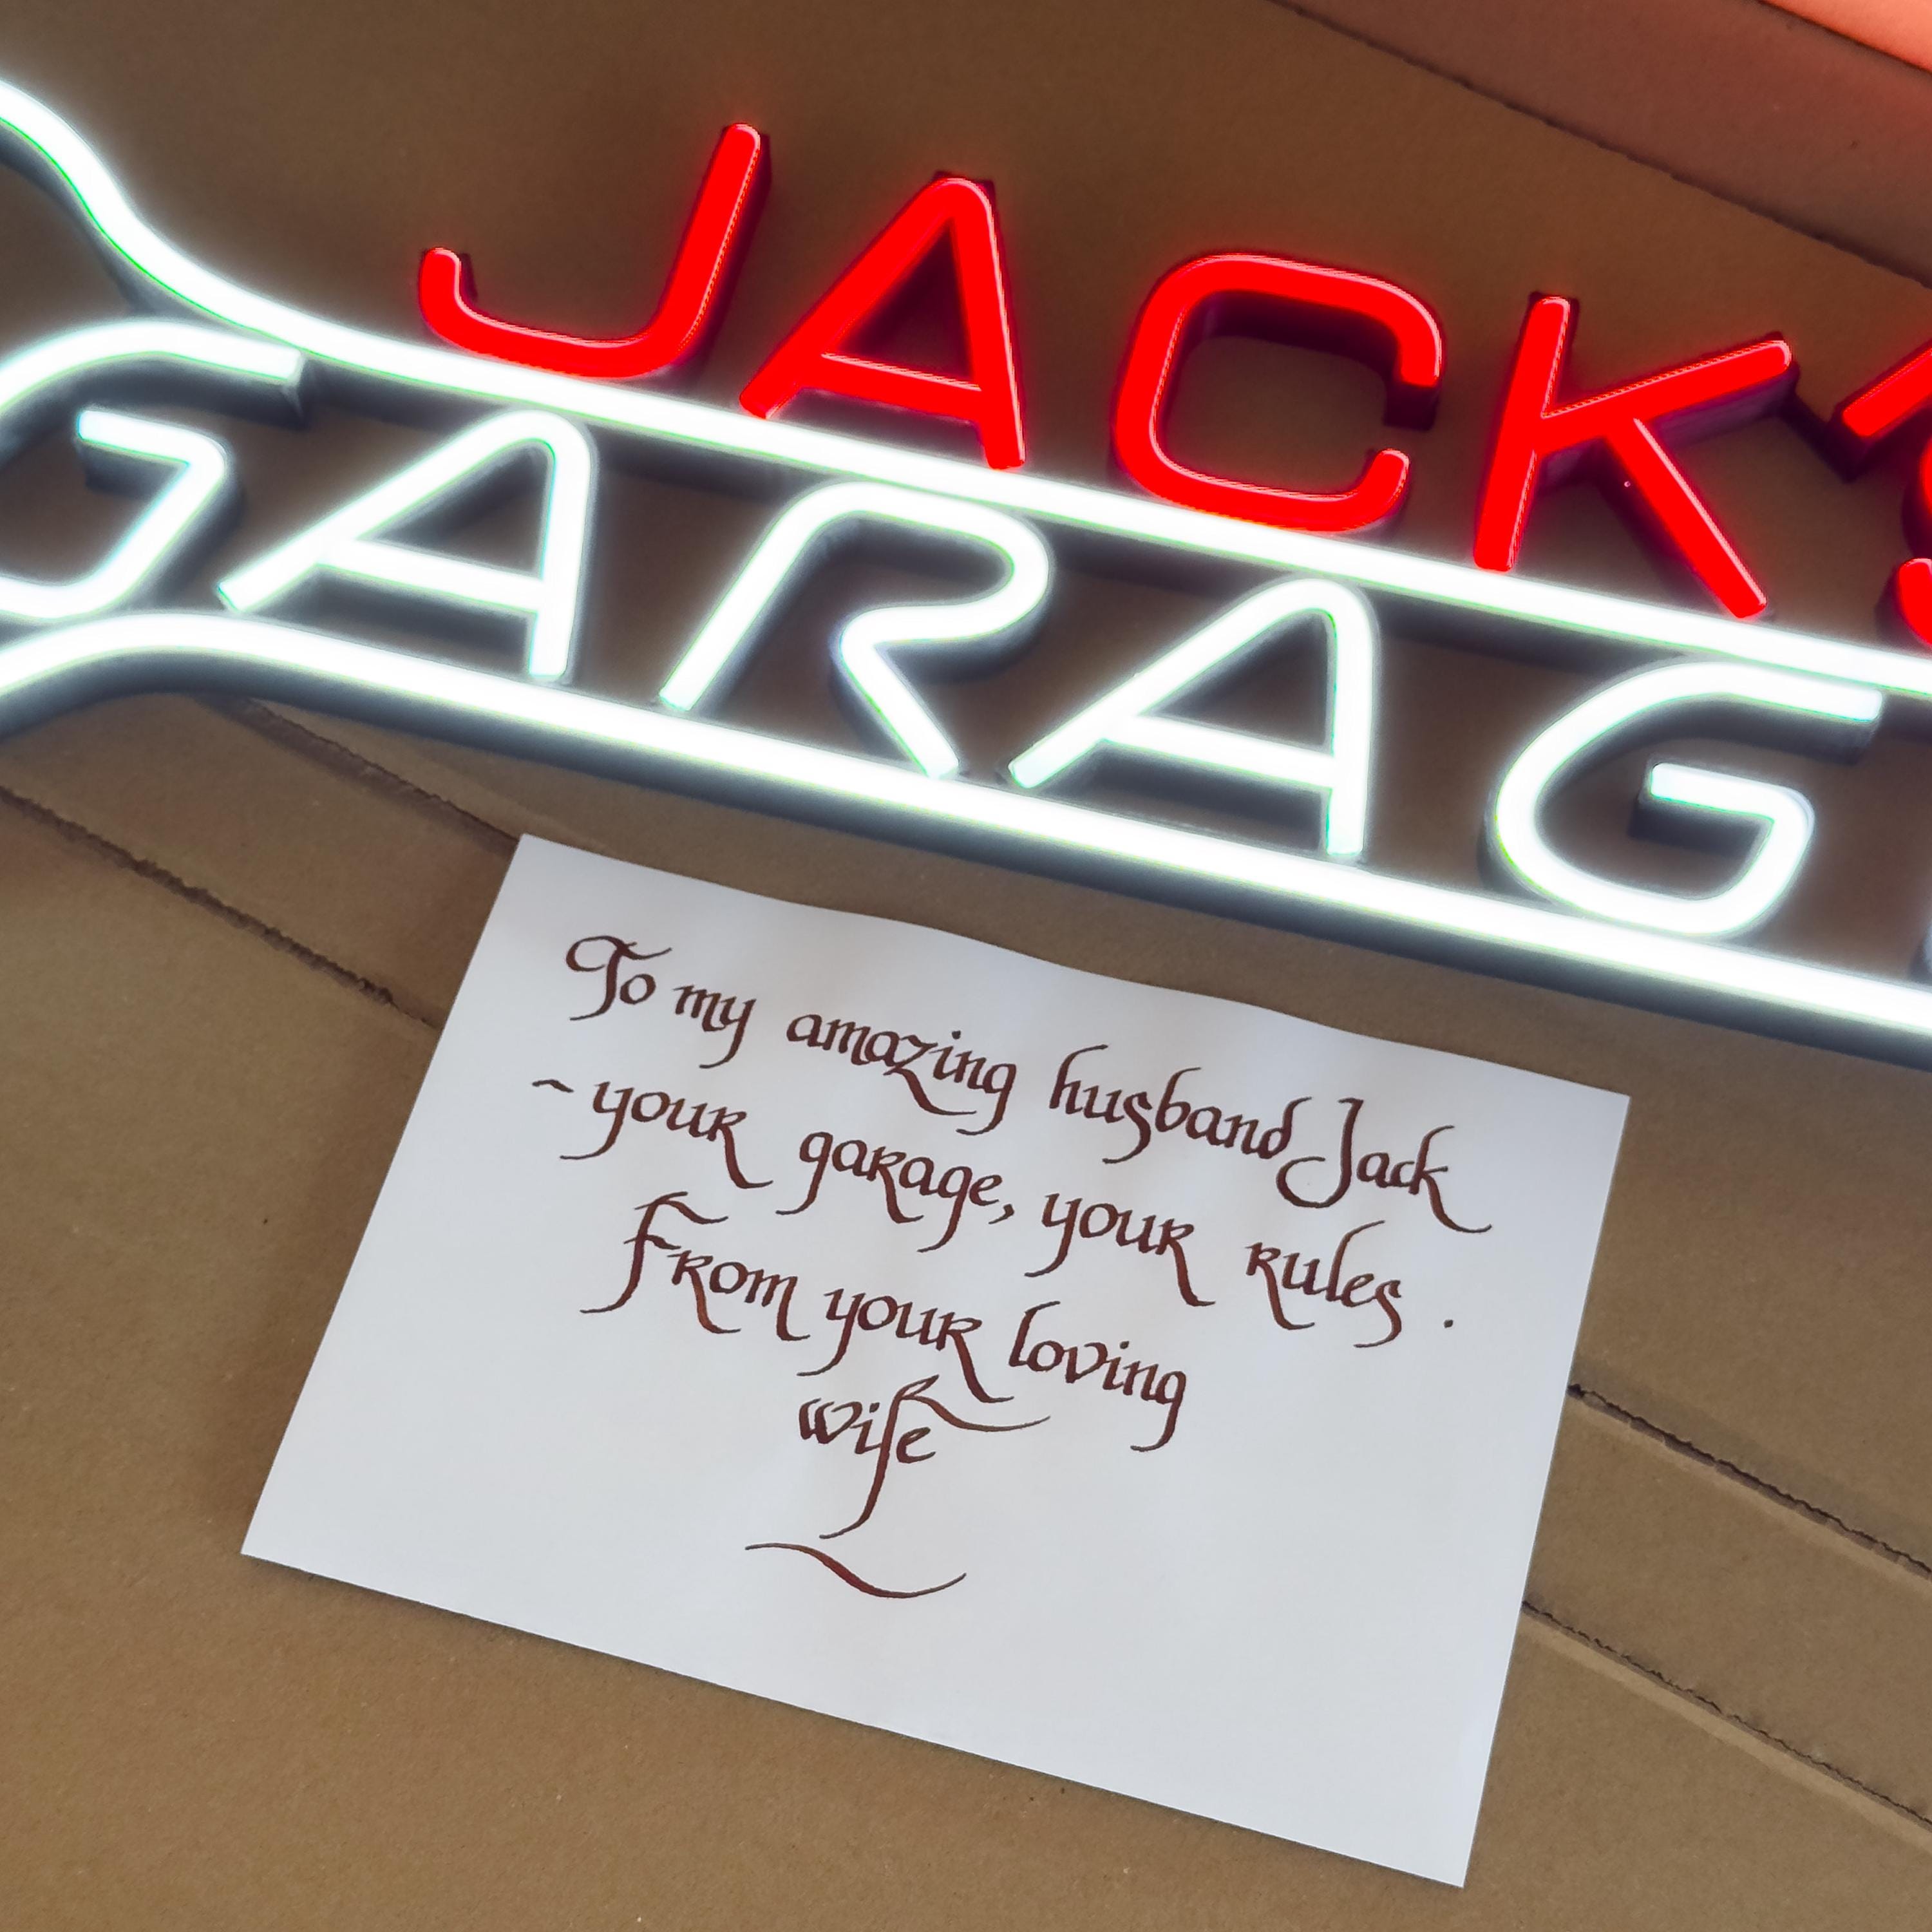 JACK'S
GARAG
To my amazing husband Jack
~ your garage, your rules .
From your loving
wife